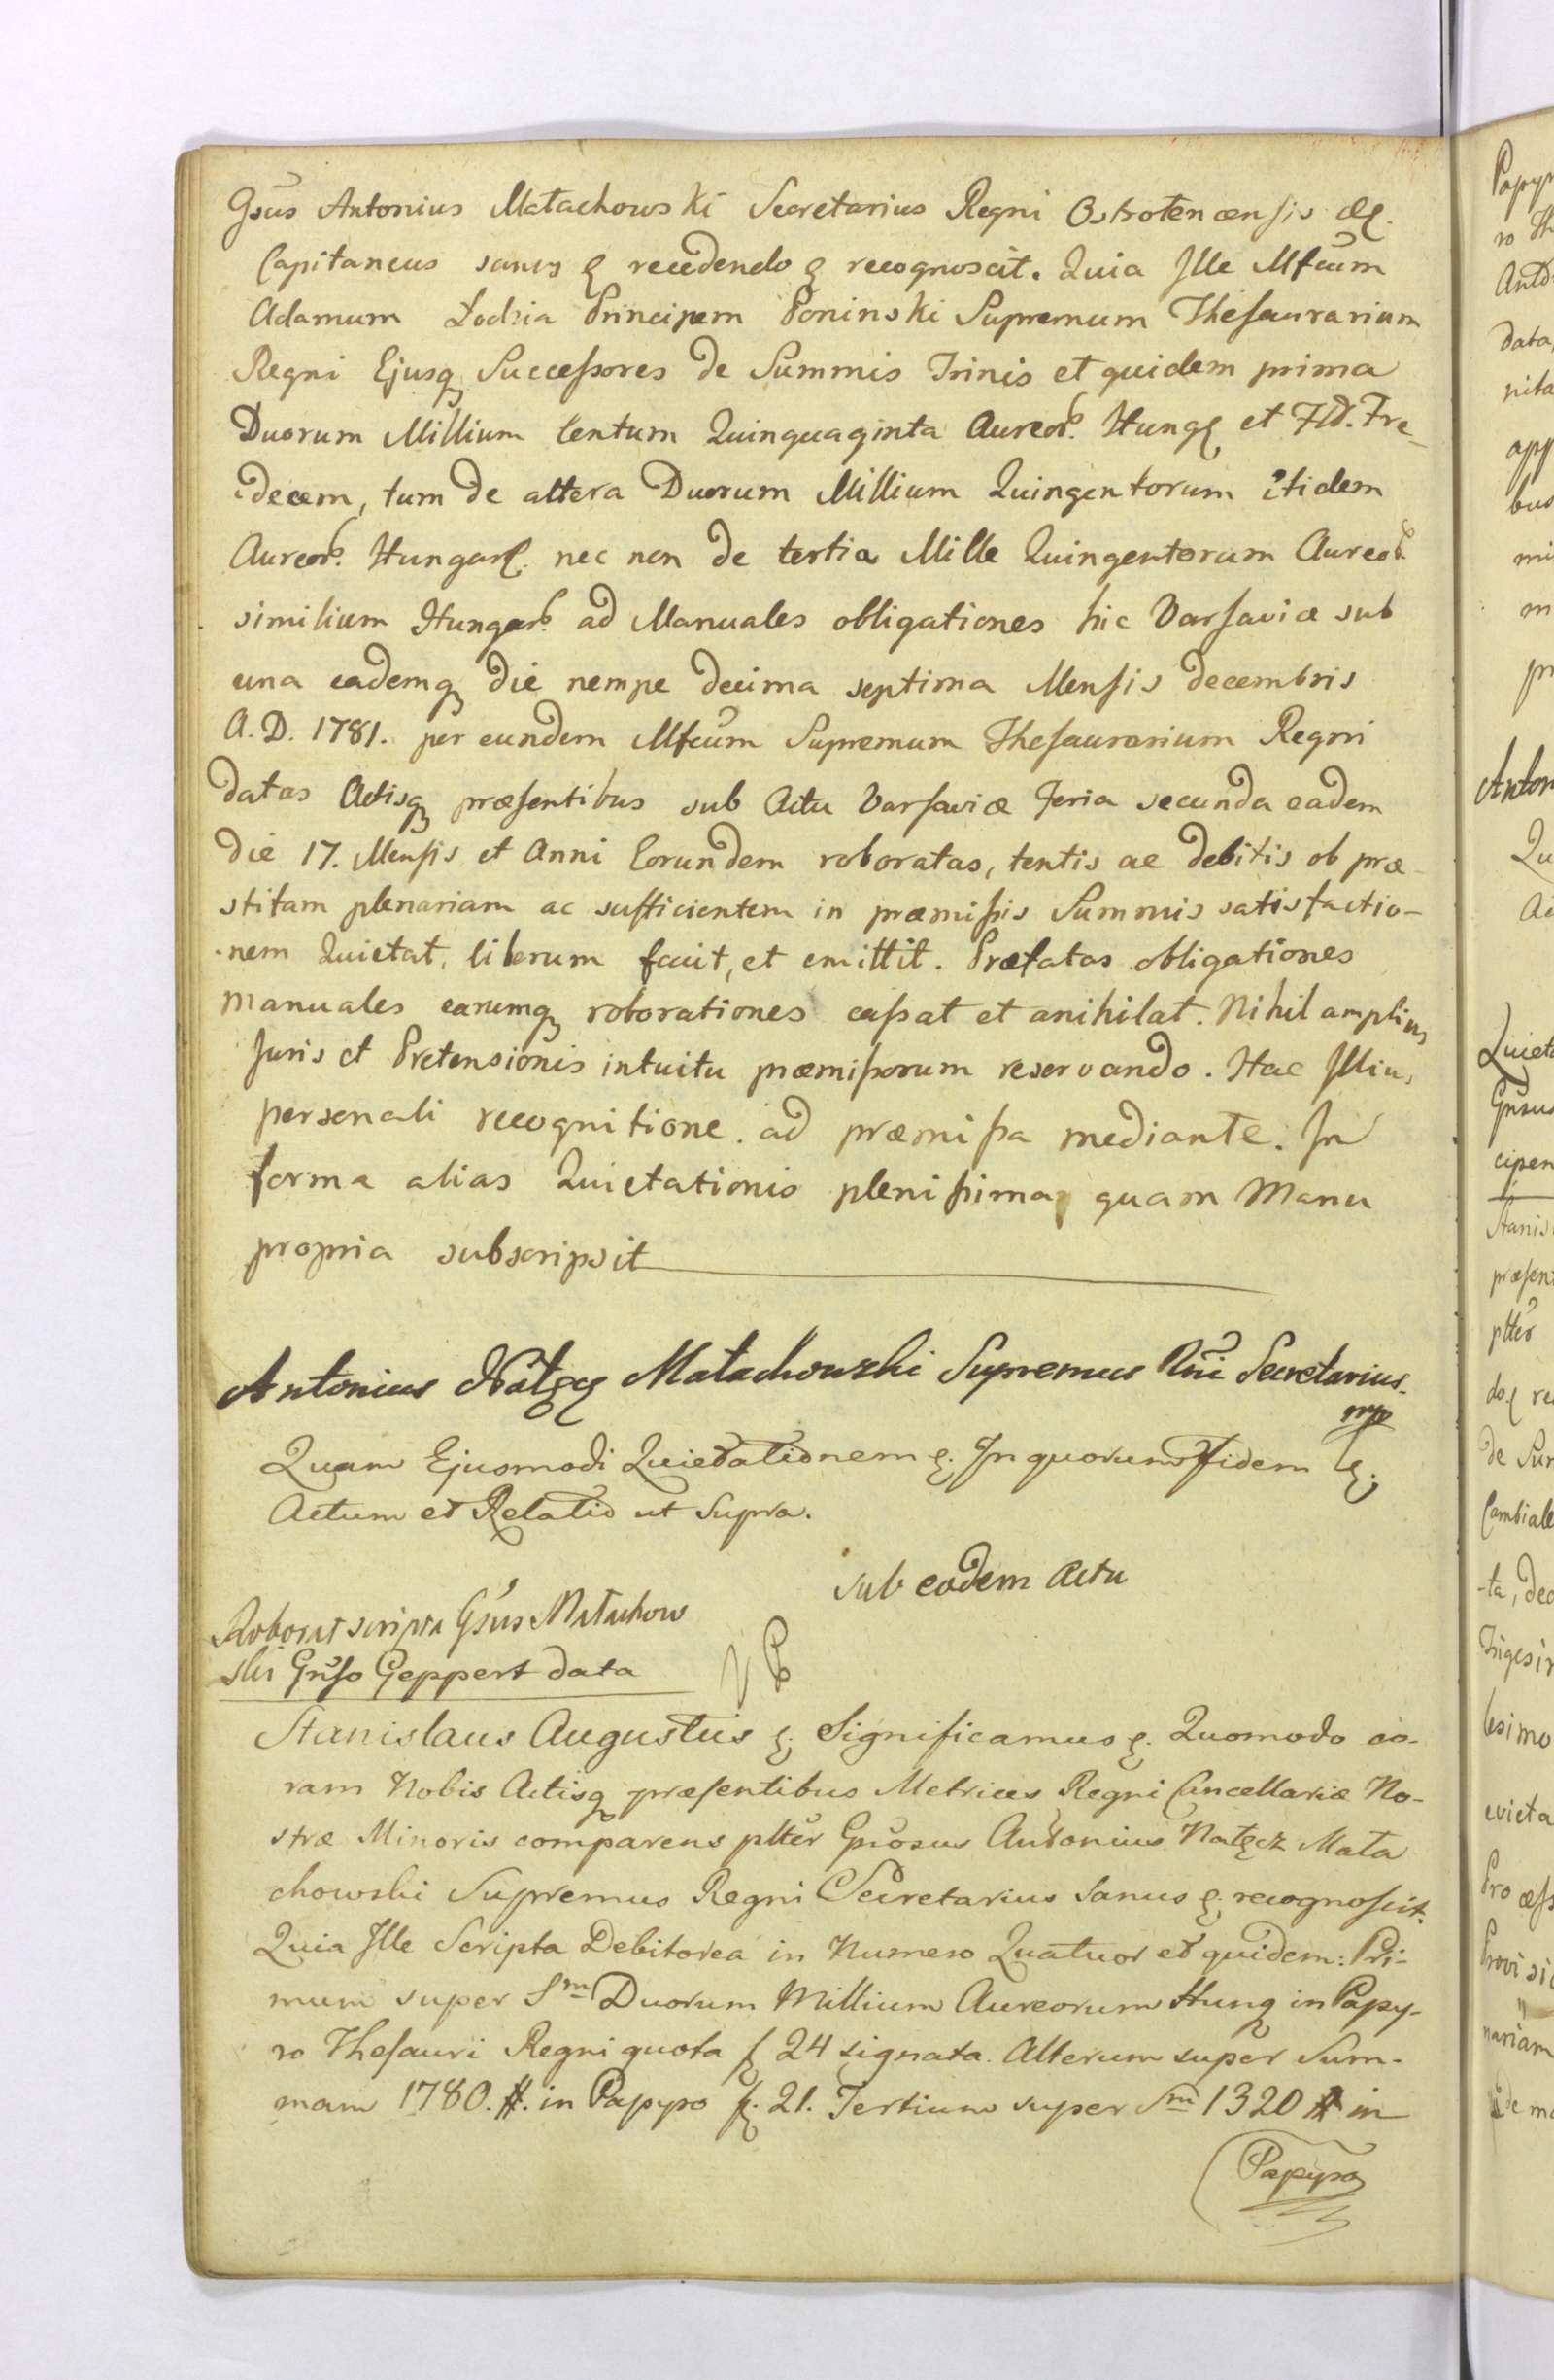 Gsus Antonius Małachowski Secretarius Regni Ostrołencensis
Capitaneus sanus recedendo recognoscit. Quia Ille Mfcum
Adamum Łodzia Principem Poninski Supremum Thesaurarium
Regni Ejusq Successores de Summis Trinis et quidem prima
Duorum Millium Centum Quinquaginta Aureor. Hung et Fld. Tre-
decem, tum de altera Duorum Millium Quingentorum itidem
Aureor. Hungar. nec non de tertia Mille Quingentorum Aureor.
similium Hungar. ad Manuales obligationes hic Varsaviæ sub
una eademq die nempe decima septima Mensis decembris
A.D. 1781. per eundem Mfcum Supremum Thesaurarium Regni
datas Actisq præsentibus sub Actu Varsaviæ Feria secunda eadem
die 17. Mensis et Anni Eorundem roboratas, tentis ac debitis ob præ-
stitam plenariam ac sufficientem in præmissis Summis satisfactio-
nem Quietat, liberum facit, et emittit. Præfatas obligationes
Manuales earumq roborationes cassat et anihilat. Nihil amplius
Juris et Pretensionis intuitu præmissorum reservando. Hac Illius
personali recognitione ad præmissa mediante. In
forma alias Quietationis plenissima, quam Manu
propria subscripsit
Antonius Nałęcz Małachowski Supremus Rni Secretarius.
mp
Quam Ejusmodi Quietationem. In quorum Fidem
Actum et Relatio ut Supra.
sub eodem Actu
Roborat scripta Gsus Małachow
ski Gnso Geppert data
Stanislaus Augustus Significamus. Quomodo co-
ram Nobis Actisq præsentibus Metrices Regni Cancellariæ No-
stræ Minoris comparens plter Gnosus Antonius Nałęcz Mała
chowski Supremus Regni Secretarius Sanus recognoscit.
Quia Ille Scripta Debitorea in Numero Quatuor et quidem: Pri-
mum super Sm Duorum Millium Aureorum Hung in Papy-
ro Thesauri Regni quota f 24 signata. Alterum super Sum-
mam 1780. #. in Papyro f. 21. Tertium super Sm 1320 # in
Papyro